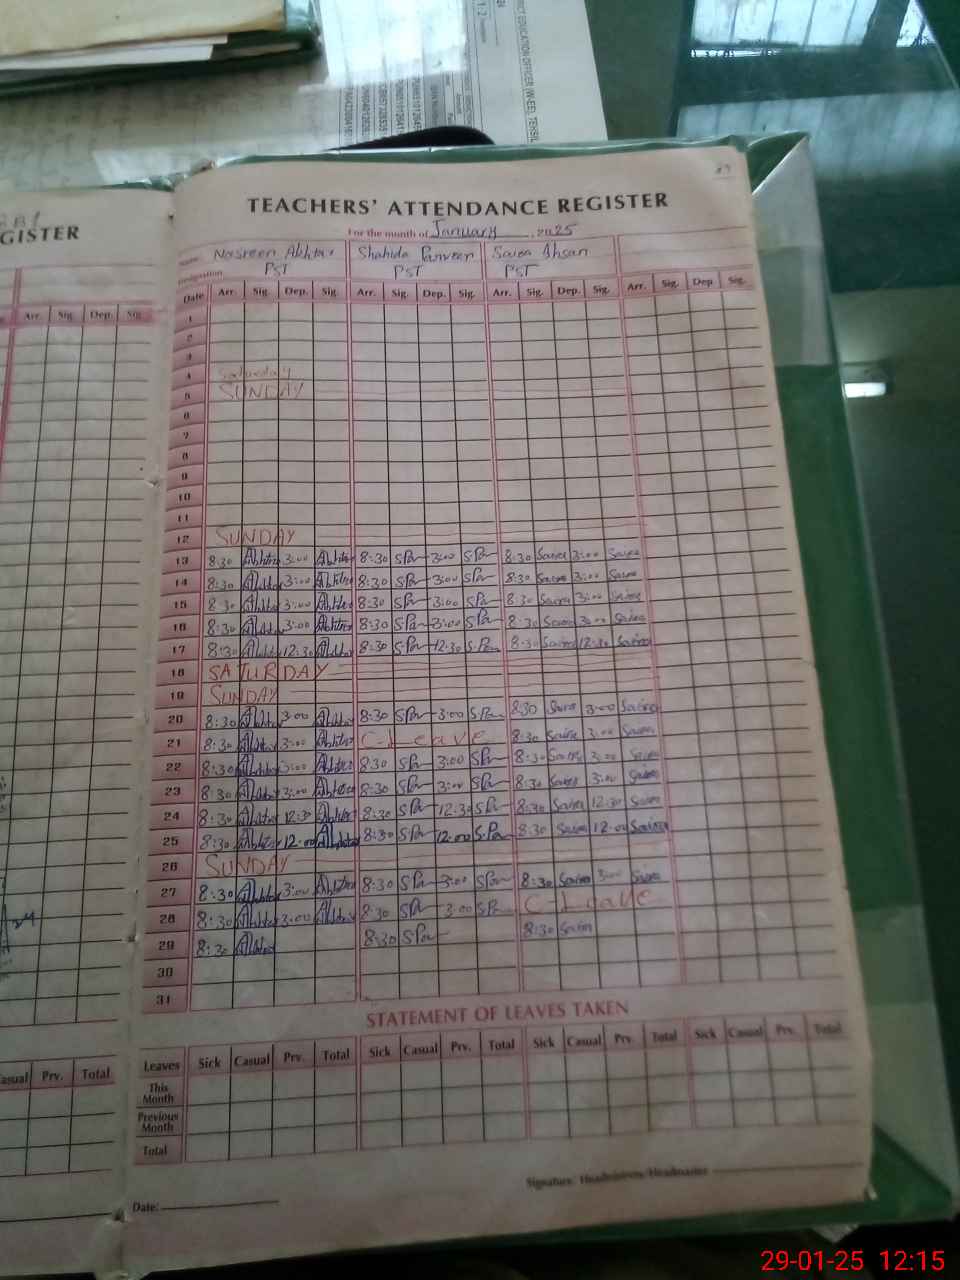 TEACHERS' ATTENDANCE REGISTER
GISTER
For the month of January, 2025
Name: Nasreen Akhtar Shahida Parveen Saira Ahsan
Designation PST PST PST
Date Arr. Sig. Dep. Sig. Arr. Sig. Dep. Sig. Arr. Sig. Dep. Sig. Arr. Sig. Dep. Sig.
Arr. Sig. Dep. Sig.
1
2
3
4 Saturday
5 SUNDAY
6
7
8
9
10
11
12 SUNDAY
13 8:30 Akhtar 3:00 Akhtar 8:30 SPar 3:00 SPar 8:30 Saira 3:00 Saira
14 8:30 Akhtar 3:00 Akhtar 8:30 SPar 3:00 SPar 8:30 Saira 3:00 Saira
15 8:30 Akhtar 3:00 Akhtar 8:30 SPar 3:00 SPar 8:30 Saira 3:00 Saira
16 8:30 Akhtar 3:00 Akhtar 8:30 SPar 3:00 SPar 8:30 Saira 3:00 Saira
17 8:30 Akhtar 12:30 Akhtar 8:30 SPar 12:30 SPar 8:30 Saira 12:30 Saira
18 SATURDAY
19 SUNDAY
20 8:30 Akhtar 3:00 Akhtar 8:30 SPar 3:00 SPar 8:30 Saira 3:00 Saira
21 8:30 Akhtar 3:00 Akhtar C-Leave 8:30 Saira 3:00 Saira
22 8:30 Akhtar 3:00 Akhtar 8:30 SPar 3:00 SPar 8:30 Saira 3:00 Saira
23 8:30 Akhtar 3:00 Akhtar 8:30 SPar 3:00 SPar 8:30 Saira 3:00 Saira
24 8:30 Akhtar 12:30 Akhtar 8:30 SPar 12:30 SPar 8:30 Saira 12:30 Saira
25 8:30 Akhtar 12:00 Akhtar 8:30 SPar 12:00 SPar 8:30 Saira 12:00 Saira
26 SUNDAY
27 8:30 Akhtar 3:00 Akhtar 8:30 SPar 3:00 SPar 8:30 Saira 3:00 Saira
28 8:30 Akhtar 3:00 Akhtar 8:30 SPar 3:00 SPar C-Leave
29 8:30 Akhtar 8:30 SPar 8:30 Saira
30
31
STATEMENT OF LEAVES TAKEN
Leaves Sick Casual Prv. Total Sick Casual Prv. Total Sick Casual Prv. Total Sick Casual Prv. Total
Prv. Total
This Month
Previous Month
Total
Signature: Headmistress/Headmaster
Date:
29-01-25 12:15